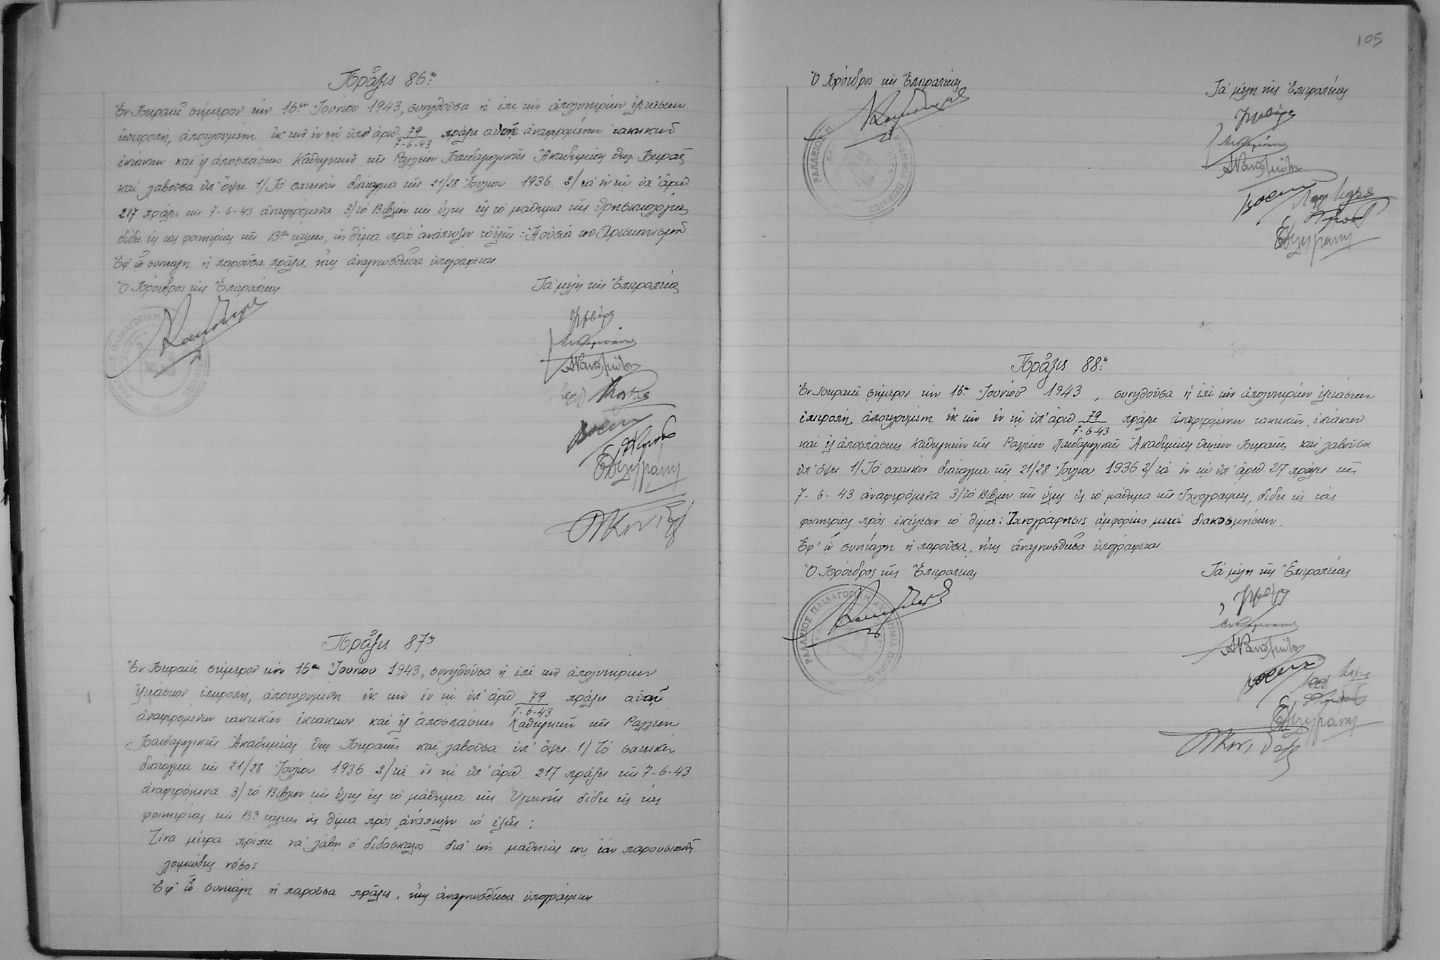 Πρᾶξις 86η
Ἐν Πειραιεῖ σήμερον τὴν 16ην Ἰουνίου 1943, συνελθοῦσα ἡ ἐπὶ τῶν ἀπολυτηρίων ἐξετάσεων
ἐπιτροπή, ἀποτελουμένη ἐκ τῶν ἐν τῇ ὑπ' ἀριθ 79/7-6-43 πράξει αὐτῆς ἀναφερομένων τακτικῶν
ἐκτάκτων καὶ ἐξ ἀποσπάσεως Καθηγητῶν τῆς Ραλλείου Παιδαγωγικῆς Ἀκαδημίας Πειραιῶς
καὶ λαβοῦσα ὑπ' ὄψει 1/ Τὸ σχετικὸν διάταγμα τῆς 21/28 Ἰουλίου 1936 2/ τὰ ἐν τῇ ὑπ' ἀριθ.
217 πράξει τῆς 7-6-43 ἀναφερόμενα 3/ τὸ Βιβλίον τῆς ὕλης εἰς τὸ μάθημα τῆς Θρησκειολογίας
δίδει εἰς τὰς φοιτητρίας τῆς Β3 τάξεως, ὡς θέμα πρὸς ἀνάπτυξιν τὸ ἑξῆς: Ἡ οὐσία τοῦ Χριστιανισμοῦ
Ἐφ' ᾧ συνετάγη ἡ παροῦσα πρᾶξις, ἥτις ἀναγνωσθεῖσα ὑπογράφεται
Ὁ Πρόεδρος τῆς Ἐπιτροπείας
Τὰ μέλη τῆς Ἐπιτροπείας
ΡΑΛΛΕΙΟΣ ΠΑΙΔΑΓΩΓΙΚΗ
Πρᾶξις 87η
Ἐν Πειραιεῖ σήμερον τὴν 16ην Ἰουνίου 1943, συνελθοῦσα ἡ ἐπὶ τῶν ἀπολυτηρίων
ἐξετάσεων ἐπιτροπή, ἀποτελουμένη ἐκ τῶν ἐν τῇ ὑπ' ἀριθ 79/7-6-43 πράξει αὐτῆς
ἀναφερομένων τακτικῶν ἐκτάκτων καὶ ἐξ ἀποσπάσεως Καθηγητῶν τῆς Ραλλείου
Παιδαγωγικῆς Ἀκαδημίας Πειραιῶς καὶ λαβοῦσα ὑπ' ὄψει 1/ τὸ σχετικὸν
διάταγμα τῆς 21/28 Ἰουλίου 1936 2/ τὰ ἐν τῇ ὑπ' ἀριθ. 217 πράξει τῆς 7-6-43
ἀναφερόμενα 3/ τὸ Βιβλίον τῆς ὕλης εἰς τὸ μάθημα τῆς Ὑγιεινῆς δίδει εἰς τὰς
φοιτητρίας τῆς τάξεως ὡς θέμα πρὸς ἀνάπτυξιν τὸ ἑξῆς:
Τίνα μέτρα πρέπει νὰ λάβῃ ὁ διδάσκαλος διὰ τοὺς μαθητάς του, ἐὰν παρουσιασθῇ
λοιμώδης νόσος
Ἐφ' ᾧ συνετάγη ἡ παροῦσα πρᾶξις, ἥτις ἀναγνωσθεῖσα ὑπογράφεται
105
Ὁ Πρόεδρος τῆς Ἐπιτροπείας
Τὰ μέλη τῆς Ἐπιτροπείας
Πρᾶξις 88η
Ἐν Πειραιεῖ σήμερον τὴν 16ην Ἰουνίου 1943, συνελθοῦσα ἡ ἐπὶ τῶν ἀπολυτηρίων ἐξετάσεων
ἐπιτροπή, ἀποτελουμένη ἐκ τῶν ἐν τῇ ὑπ' ἀριθ 79/7-6-43 πράξει ἀναφερομένων τακτικῶν, ἐκτάκτων
καὶ ἐξ ἀποσπάσεως Καθηγητῶν τῆς Ραλλείου Παιδαγωγικῆς Ἀκαδημίας Πειραιῶς καὶ λαβοῦσα
ὑπ' ὄψει 1/ Τὸ σχετικὸν διάταγμα τῆς 21/28 Ἰουλίου 1936 2/ τὰ ἐν τῇ ὑπ' ἀριθ 217 πράξει τῆς
7-6-43 ἀναφερόμενα 3/ τὸ Βιβλίον τῆς ὕλης εἰς τὸ μάθημα τῆς Ἰχνογραφίας, δίδει εἰς τὰς
φοιτητρίας πρὸς ἐκτέλεσιν τὸ θέμα: Ἰχνογράφησις ἀμφορέως μετὰ διακοσμήσεων.
Ἐφ' ᾧ συνετάγη ἡ παροῦσα, ἥτις ἀναγνωσθεῖσα ὑπογράφεται.
Ὁ Πρόεδρος τῆς Ἐπιτροπείας
Τὰ μέλη τῆς Ἐπιτροπείας
ΡΑΛΛΕΙΟΣ ΠΑΙΔΑΓΩΓΙΚΗ ΑΚΑΔΗΜΙΑ ΠΕΙΡΑΙΩΣ